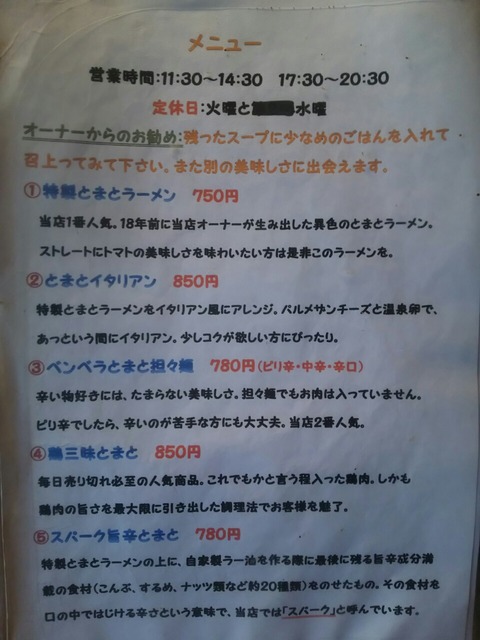 メニュー
営業時間:11:30～14:30 17:30～20:30
定休日:火曜と水曜
オーナーからのお勧め:残ったスープに少なめのごはんを入れて
召上ってみて下さい。また別の美味しさに出会えます。
①特製とまとラーメン 750円
当店1番人気。18年前に当店オーナーが生み出した異色のとまとラーメン。
ストレートにトマトの美味しさを味わいたい方は是非このラーメンを。
②とまとイタリアン 850円
特製とまとラーメンをイタリアン風にアレンジ。パルメサンチーズと温泉卵で、
あっという間にイタリアン。少しコクが欲しい方にぴったり。
③ベンベラとまと担々麺 780円(ピリ辛・中辛・辛口)
辛い物好きには、たまらない美味しさ。担々麺でもお肉は入っていません。
ピリ辛でしたら、辛いのが苦手な方にも大丈夫。当店2番人気。
④鶏三昧とまと 850円
毎日売り切れ必至の人気商品。これでもかと言う程入った鶏肉。しかも
鶏肉の旨さを最大限に引き出した調理法でお客様を魅了。
⑤スパーク旨辛とまと 780円
特製とまとラーメンの上に、自家製ラー油を作る際に最後に残る旨辛成分満
載の食材(こんぶ、するめ、ナッツ類など約20種類)をのせたもの。その食材を
口の中ではじける辛さという意味で、当店では「スパーク」と呼んでいます。